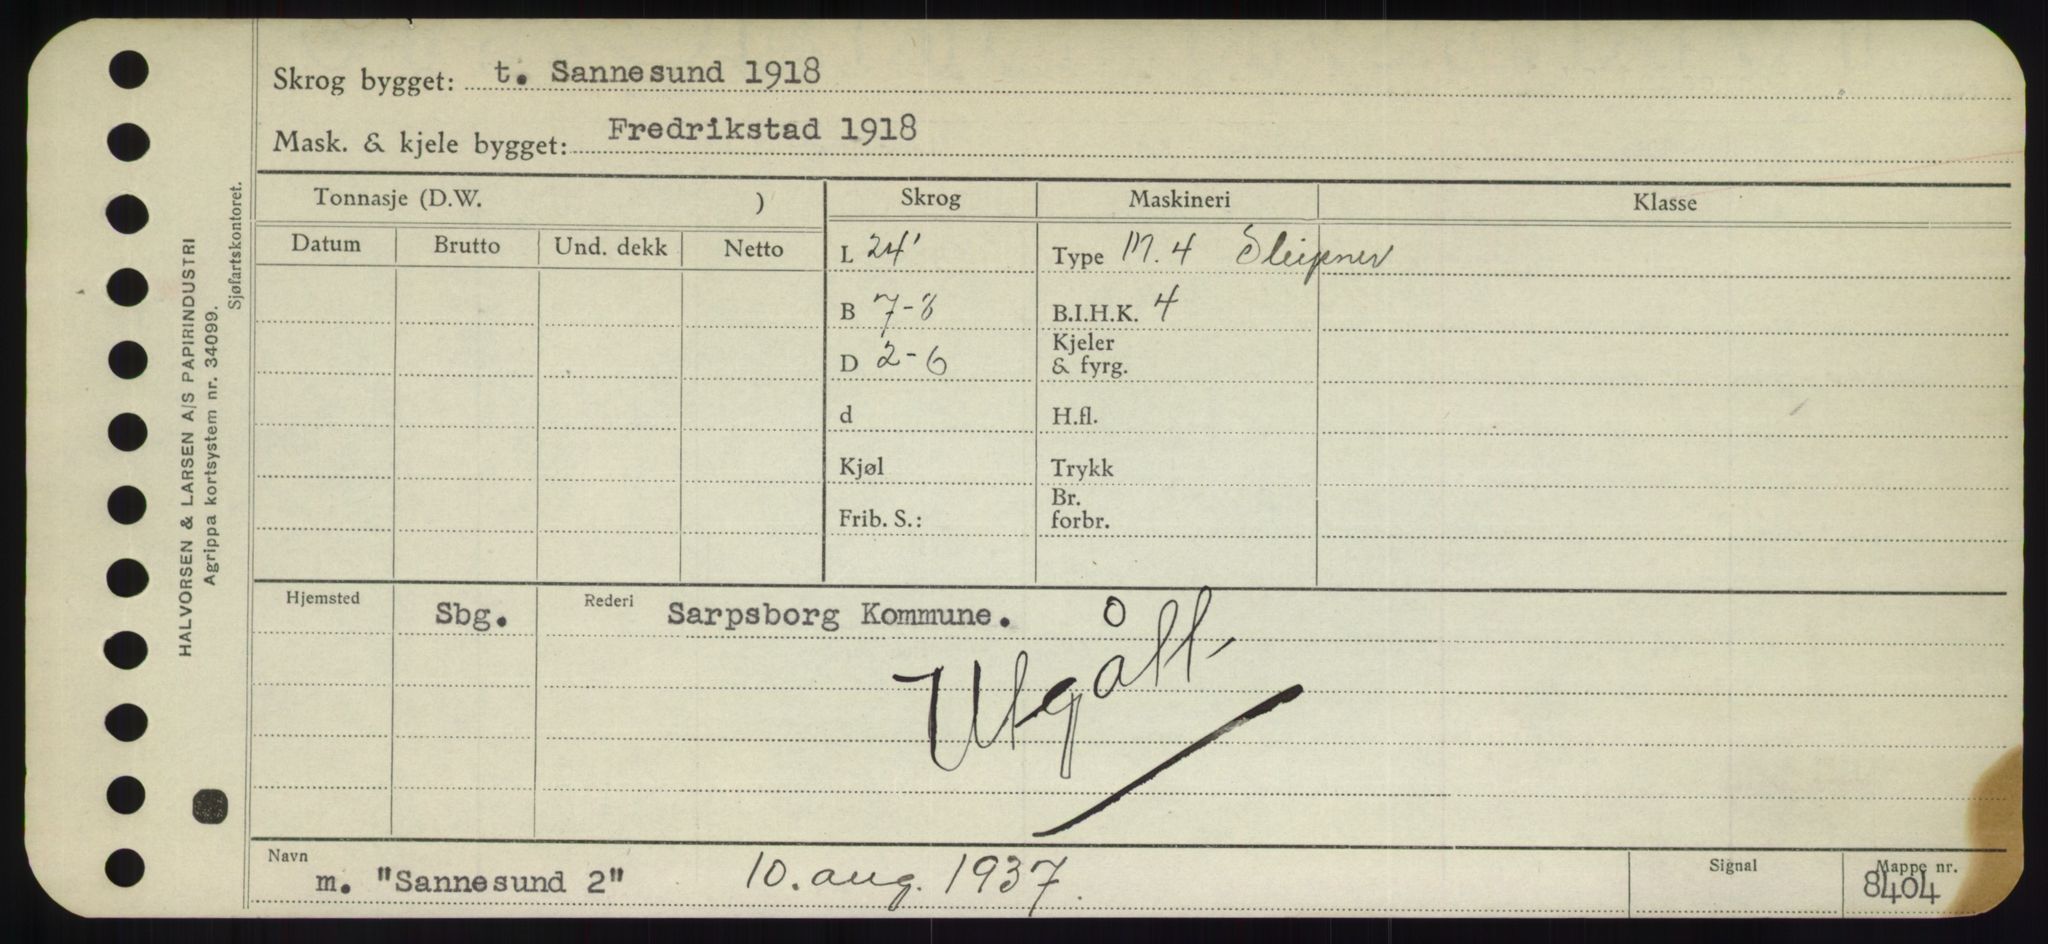 Skrog bygget: t. Sannesund 1918
Mask. & kjele bygget: Fredrikstad 1918
Tonnasje (D.W. ) Skrog Maskineri Klasse
Datum Brutto Und. dekk Netto
L 24' Type M. 4 Sleipner
B 7-8 B.I.H.K. 4
D 2-6 Kjeler & fyrg.
d H.fl.
Kjøl Trykk
Frib. S.: Br. forbr.
Hjemsted Sbg. Rederi Sarpsborg Kommune.
Utgått
Navn m. "Sannesund 2" 10. aug. 1937. Signal Mappe nr. 8404
HALVORSEN & LARSEN A/S PAPIRINDUSTRI
Agrippa kortsystem nr. 34099.
Sjøfartskontoret.